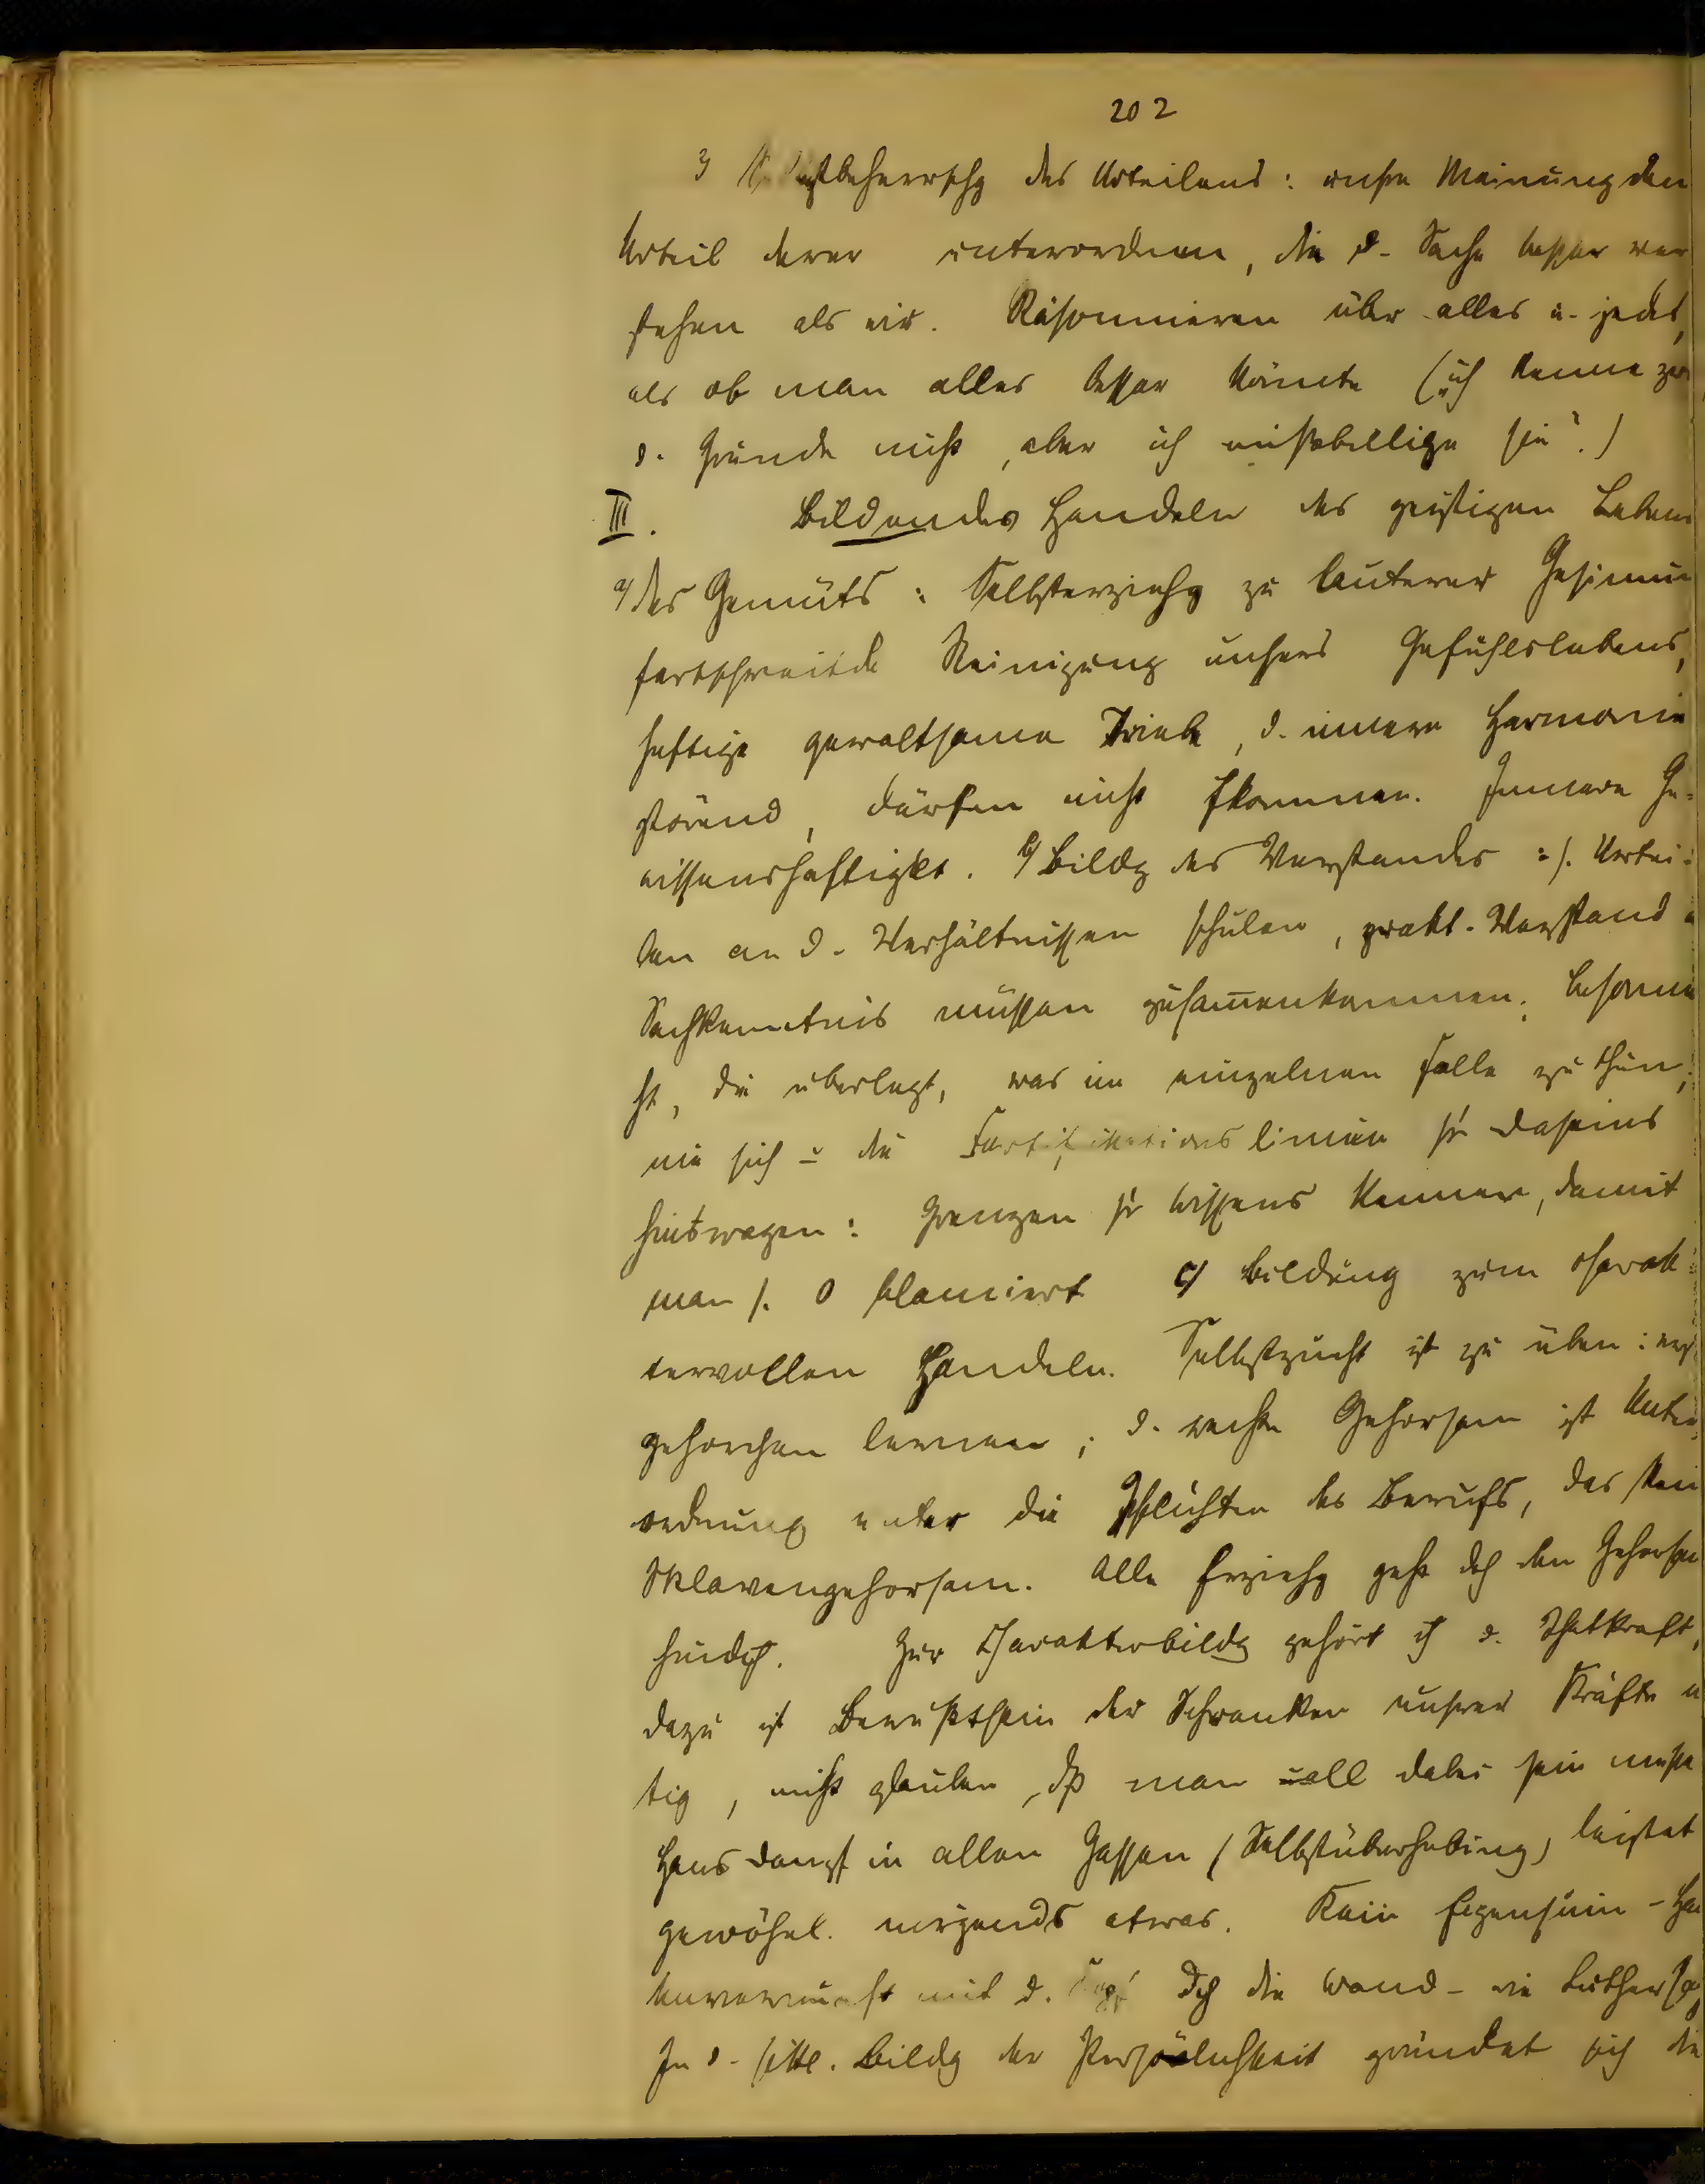 202
3) Selbstbeherrschg des Urteilens: unsre Meinung dem
Urteil derer unterordnen, die d. Sache besser ver
stehen als wir. Räsonnieren über alles u. jedes,
als ob man alles besser könnte („ich kenne zwar
d. Gründe nicht, aber ich mißbillige sie“.)
III. Bildendes Handeln des geistigen Lebens
a) des Gemüts: Selbsterziehg zu lauterer Gesinnung
fortschreitde Reinigung unsers Gefühlslebens,
heftige gewaltsame Triebe, d. innere Harmonie
störend, dürfen nicht kommen. Innere Ge-
wissenshaftigkt. b) Bildg des Verstandes: s. Urtei-
len an d. Verhältnissen schulen, prakt. Verstand u
Sachkenntnis müssen zusam̄enkommen. Besonnen
ht, die überlegt, was im einzelnen Falle zu thun,
nie sich ü die Fortifikationslinien sr Daseins
hinswagen: Grenzen sr Wissens kennen, damit
man s. 0 blamiert c) Bildung zum charak-
tervollen Handeln. Selbstzucht ist zu üben: erst
gehorchen lernen; d. rechte Gehorsam ist Unter
ordnung unter die Pflichten des Berufs, das kein
Sklavengehorsam. Alle Erziehg geht dch den Gehorsam
hindch. Zur Charakterbildg gehört ch d. Thatkraft,
dazu ist Bewußtsein der Schranken unsrer Kräfte nö
tig, nicht glauben, dß man üall dabei sein müsse
Hans Dampf in allen Gassen (Selbstüberhebung) leistet
gewöhnl. nirgends etwas. Kein Eigensinn - Hans
Unvernunft mit d. Kopf dch die Wand - wie Luther sagt
In d. sittl. Bildg der Persönlichkeit gründet sich die